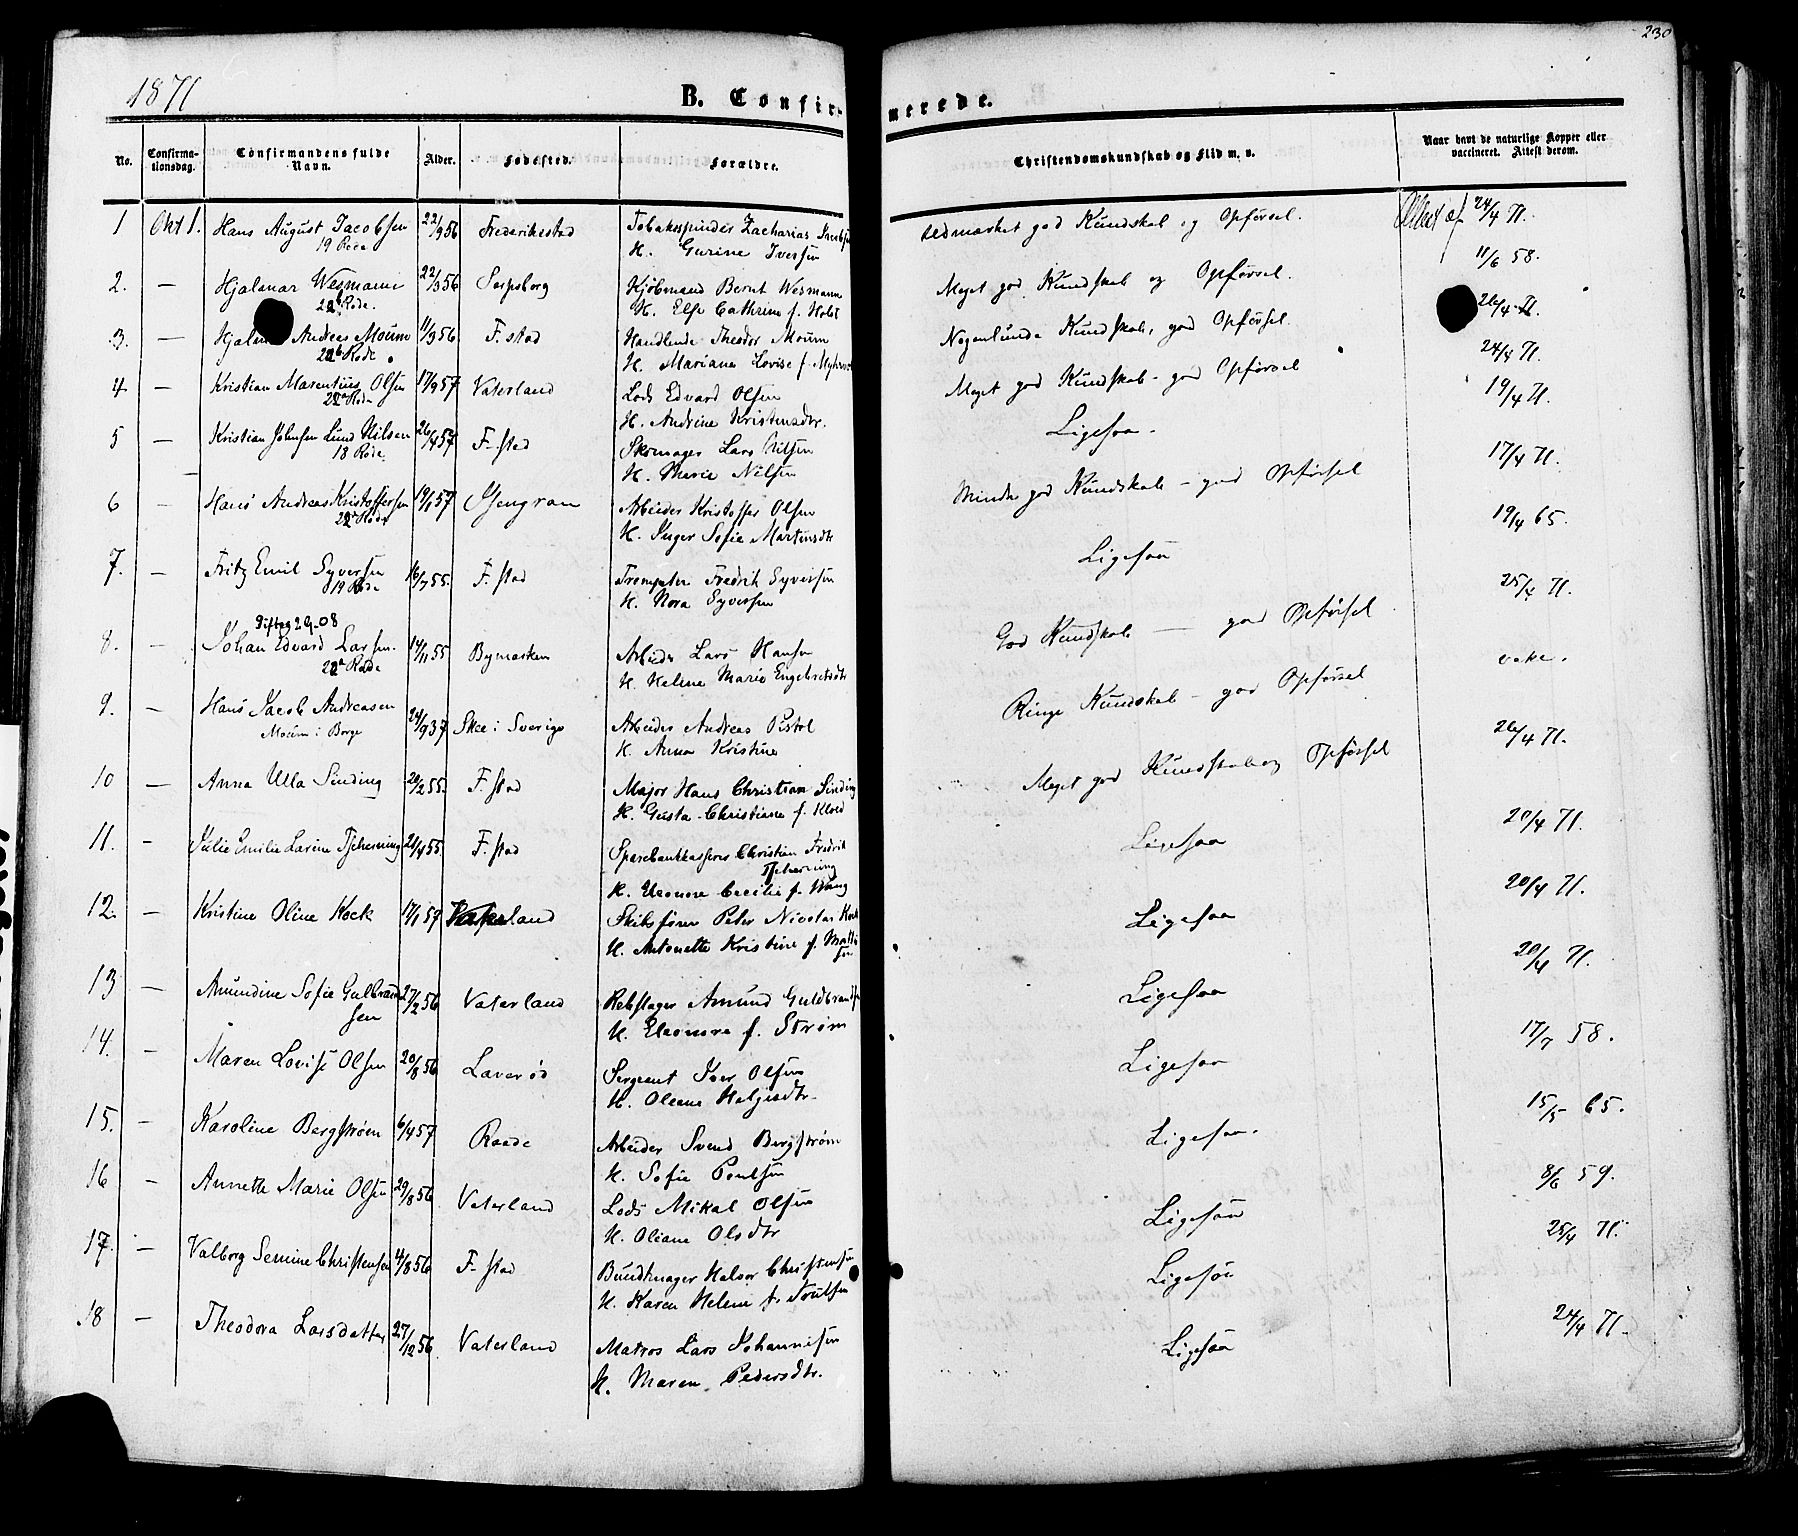 230
1871
B. Confirmerede.
No. Confirmationsdag. Confirmandens fulde Navn. Alder. Fødested. Forældre. Christendomskundskab og Flid m. v. Naar havt de naturlige Kopper eller vaccineret. Attest derom.
1 Okt 1. Hans August Jacobsen 22/9 56 Frederikstad Tobakspinder Zacharias Jacobsen Udmærket god Kundskab og Opførsel. Attest af 24/4 71.
19 Rode H. Gurine Iversen
2. — Hjalmar Wesmann 22/3 56 Sarpsborg Kjøbmand Bernt Wesmann Meget god Kundskab og Opførsel. 11/6 58.
22b Rode. H. Elise Cathrine f. Holst
3. — Hjalmar Andreas Moum 11/9 56 F. stad Handlende Theodor Moum Nogenlunde Kundskab, god Opførsel. 26/4 71.
22b Rode H. Mariane Lovise f.
4 — Kristian Marentius Olsen 17/9 57 Vaterland Lods Edvard Olsen Meget god Kundskab – god Opførsel 24/4 71.
22a Rode H. Andrine Kristensdtr.
5 — Kristian Johnsen Lund Nilsen 26/4 57 F. stad Skomager Lars Nilsen Ligesaa. 19/4 71.
18 Rode. H. Marie Nilsen
6 — Hans Andreas Kristoffersen 19/1 57 Isengran Arbeider Kristoffer Olsen Mindre god Kundskab – god Opførsel 17/4 71.
22a Rode H. Inger Sofie Martinsdtr
7. — Fritz Emil Syversen 16/7 55. F. stad Trompeter Fredrik Syversen Ligesaa 19/4 65.
19 Rode H. Nora Syversen
Diftag 29-08
8. — Johan Edvard Larsen. 14/11 55 Bymarken Arbeider Lars Hansen God Kundskab — god Opførsel 25/4 71.
22a Rode H. Helene Marie Engebretsdtr
9. — Hans Jacob Andreasen 24/9 37 Skee i Sverige Arbeider Andreas Pistol Ringe Kundskab – god Opførsel
Moum i Borge H. Anna Kristine
10 — Anna Ulla Sinding 20/2 55. F. stad Major Hans Christian Sinding Meget god Kundskab og Opførsel 26/4 71.
H. Gusta Christiane f.
11. — Julie Emilie Larine Tjcherning 21/4 55. F. stad Sparebankkasserer Christian Fredrik Ligesaa 20/4 71.
Tjcherning
H. Eleonore Cecilie f. Wang
12. — Kristine Oline Kock 17/1 57 Vaterland Skibsfører Peter Nicolai Kock Ligesaa 20/4 71.
H. Antonette Kristine f. Mathisen
13 — Amundine Sofie Gulbrandsen 27/2 56 Vaterland Rebslager Amund Guldbrandsen Ligesaa 20/4 71.
H. Eleonore f. Strøm
14. — Maren Lovise Olsen 20/8 56 Laverød Sergeant Iver Olsen Ligesaa 17/7 58.
H. Oleane Helgesdtr.
15. — Karoline Bergstrøm 6/4 57 Raade Arbeider Svend Bergstrøm Ligesaa. 15/5 65.
H. Sofie Poulsen
16 — Annette Marie Olsen 29/8 56 Vaterland Lods Mikal Olsen Ligesaa 8/6 59.
H. Oliane Olsdtr
17. — Valborg Semine Christensen 4/8 56 F. stad Bundtmager Halvor Christensen Ligesaa 25/4 71.
H. Karen Helene f. Poulsen
18 — Theodora Larsdatter 27/12 56 Vaterland Matros Lars Johannesen Ligesaa 24/4 71.
H. Maren Pedersdtr.